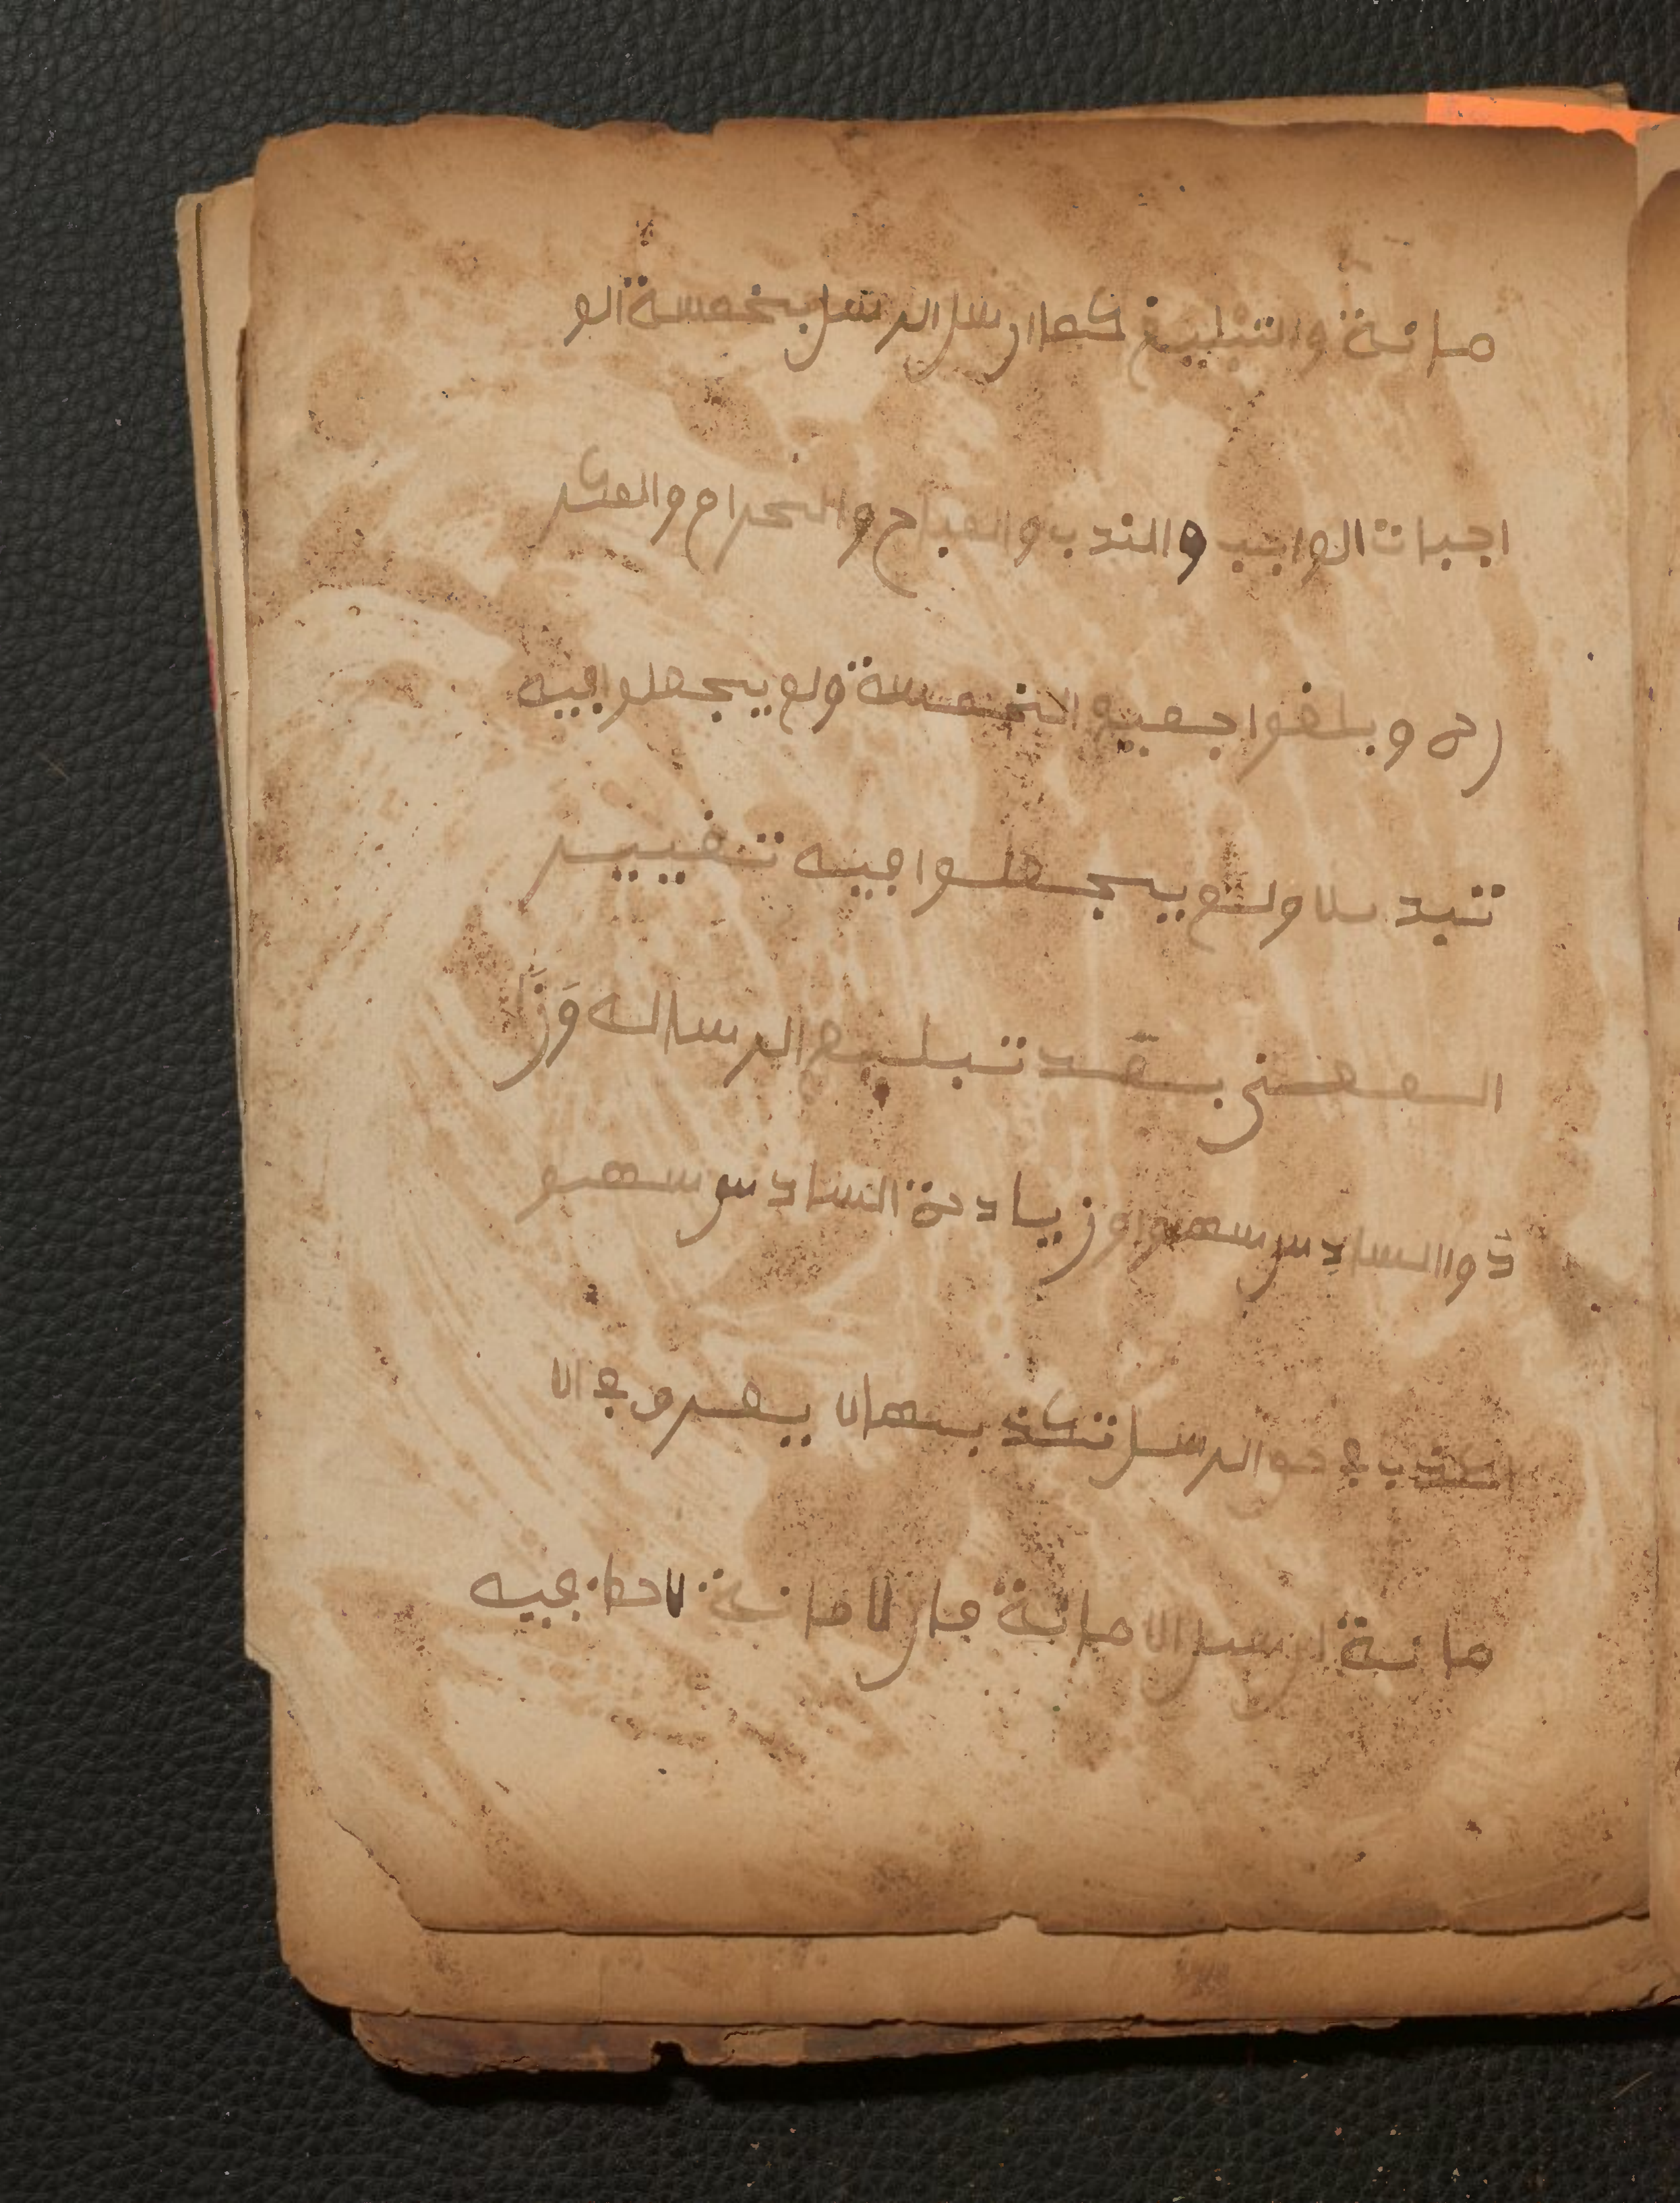 مانة والتبليغ كما ارسل الرسل بخمسة الو
اجبات الواجب والندب والمباح والحرام والمكر
ره وبلغوا جميع الخمسة ولم يجعلوا فيه
تبديلا ولم يجعلوا فيه تغيير
المعنى بقد تبليغ الرساله وَزَا
دوا السادس سهوا وزيادة السادس سهو
الكذب في حو الرسل تكذبهالا يعر و في الا
مانة ارسل الا مانة مار لا مانة لاحظ فيه